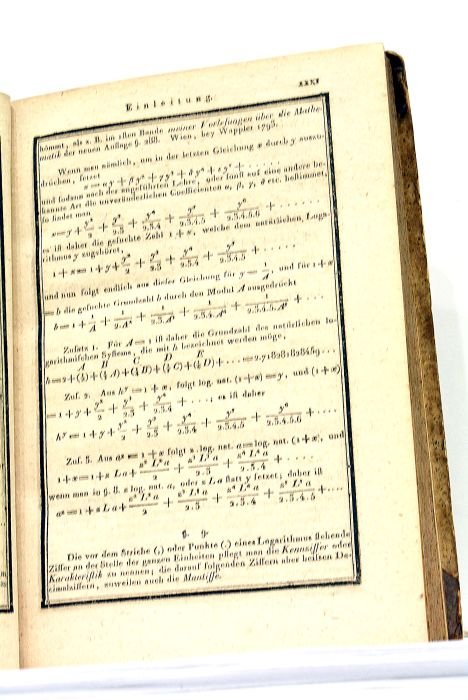 Einleitung. XXXI
kömmt, als z. B. im 1sten Bande meiner Vorlesungen über die Mathe-
matik der neuen Auflage §. 288. Wien, bey Wappler 1793.
Wenn man nämlich, um in der letzten Gleichung x durch y auszu-
drücken, setzt
x = αy + βy² + γy³ + δy⁴ + εy⁵ + . . . . . .
und sodann nach der angeführten Lehre, oder sonst auf eine andere be-
kannte Art die unveränderlichen Coefficienten α, β, γ, δ etc. bestimmet,
so findet man
x = y + y²/2 + y³/2.3 + y⁴/2.3.4 + y⁵/2.3.4.5 + y⁶/2.3.4.5.6 + . . . . . .
es ist daher die gesuchte Zahl 1 + x, welche dem natürlichen Loga-
rithmus y zugehöret,
1 + x = 1 + y + y²/2 + y³/2.3 + y⁴/2.3.4 + y⁵/2.3.4.5 + . . . . . .
und nun folgt endlich aus dieser Gleichung für y = 1/A, und für 1 + x
= b die gesuchte Grundzahl b durch den Modul A ausgedrückt
b = 1 + 1/A + 1/2.A² + 1/2.3.A³ + 1/2.3.4.A⁴ + 1/2.3.4.5.A⁵ + . . .
Zusatz 1. Für A = 1 ist daher die Grundzahl des natürlichen lo-
garithmischen Systems, die mit h bezeichnet werden möge,
A B C D E
h = 2 + (½) + (⅓ A) + (¼ B) + (⅕ C) + (⅙ D) + . . . = 2.718281828459...
Zus. 2. Aus hʸ = 1 + x, folgt log. nat. (1 + x) = y, und (1 + x)
= 1 + y + y²/2 + y³/2.3 + y⁴/2.3.4 + . . . ; es ist daher
hʸ = 1 + y + y²/2 + y³/2.3 + y⁴/2.3.4 + y⁵/2.3.4.5 + y⁶/2.3.4.5.6 + . . .
Zus. 3. Aus aᶻ = 1 + x folgt z. log. nat. a = log. nat. (1 + x), und
1 + x = 1 + z La + z² L² a/2 + z³ L³ a/2.3 + z⁴ L⁴ a/2.3.4 + . . . .
wenn man in §. 8. z log. nat. a, oder z La statt y setzet; daher ist
aᶻ = 1 + z La + z² L² a/2 + z³ L³ a/2.3 + z⁴ L⁴ a/2.3.4 + z⁵ L⁵ a/2.3.4.5 + . . . .
§. 9.
Die vor dem Striche (,) oder Punkte (.) eines Logarithmus stehende
Ziffer an der Stelle der ganzen Einheiten pflegt man die Kennziffer oder
Karakteristik zu nennen; die darauf folgenden Ziffern aber heissen De-
cimalziffern, zuweilen auch die Mantisse.